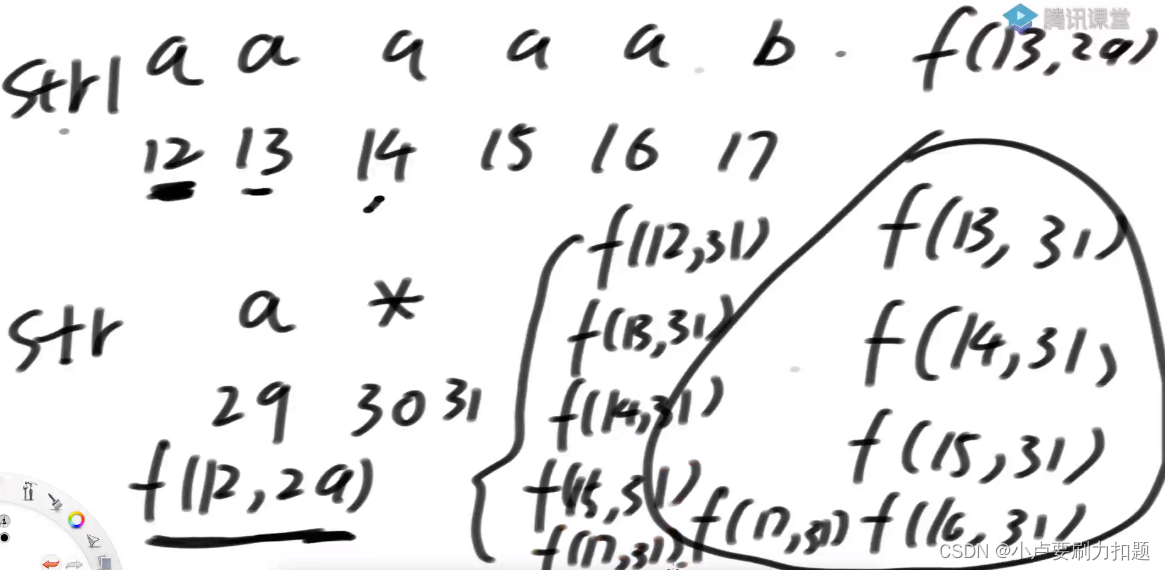 腾讯课堂
str1 a a a a a b f(13,29)
12 13 14 15 16 17
f(12,31) f(13,31)
str a *
f(13,31) f(14,31)
29 30 31
f(14,31)
f(12,29) f(15,31) f(15,31)
f(17,31) f(17,31) f(16,31)
CSDN @小卢要刷力扣题